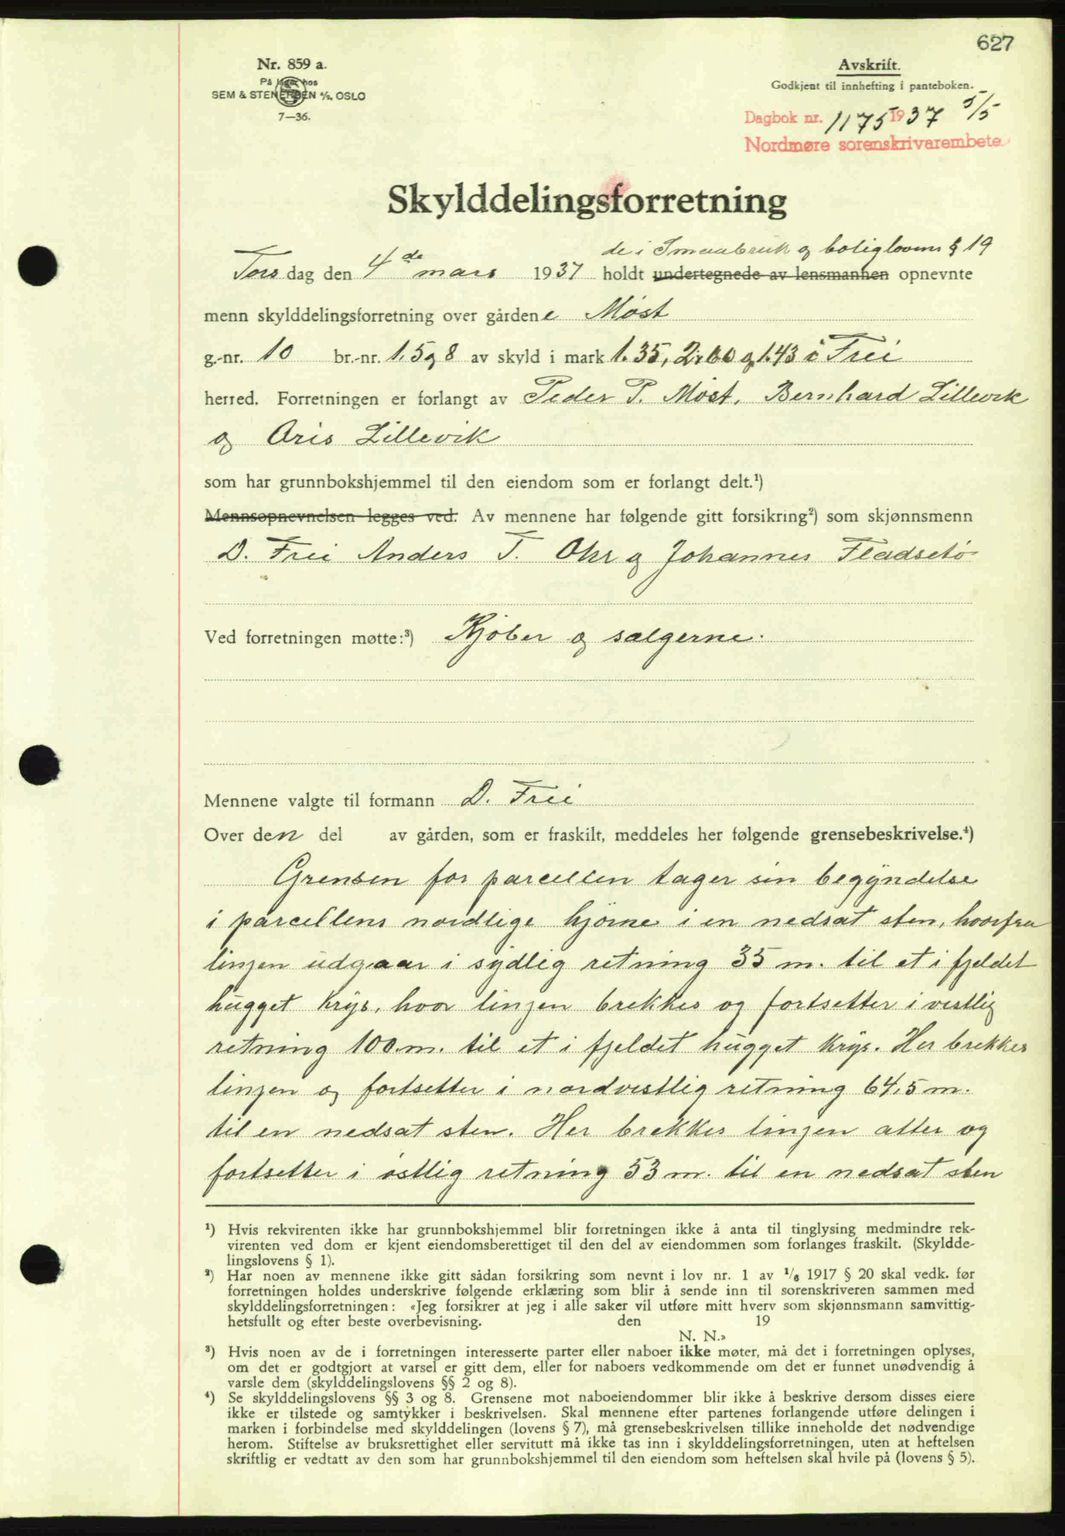 627
Nr. 859 a.
På lager hos
SEM & STENERSEN A/S, OSLO
7—36.
Avskrift.
Godkjent til innhefting i panteboken.
Dagbok nr. 1175 1937 5/5
Nordmøre sorenskrivarembete
Skylddelingsforretning
de i Smaabruk og boliglovens § 19
Tors dag den 4de mars 1937 holdt undertegnede av lensmannen opnevnte
menn skylddelingsforretning over gårdene Møst
g.-nr. 10 br.-nr. 1, 5 og 8 av skyld i mark 1.35, 2.60 og 1.43 i Frei
herred. Forretningen er forlangt av Peder P. Møst, Bernhard Lillevik
og Aris Lillevik
som har grunnbokshjemmel til den eiendom som er forlangt delt.¹)
Mennsopnevnelsen legges ved. Av mennene har følgende gitt forsikring²) som skjønnsmenn
D. Frei Anders T. Ohr og Johannes Fladsetø
Ved forretningen møtte:³) Kjøber og sælgerne.
Mennene valgte til formann D. Frei
Over den del av gården, som er fraskilt, meddeles her følgende grensebeskrivelse.⁴)
Grensen for parcellen tager sin begyndelse
i parcellens nordlige hjørne i en nedsat sten, hvorfra
linjen udgaar i sydlig retning 35 m. til et i fjeldet
hugget krys, hvor linjen brekkes og fortsetter i vestlig
retning 100 m. til et i fjeldet hugget krys. Her brekkes
linjen og fortsetter i nordvestlig retning 64,5 m.
til en nedsat sten. Her brekkes linjen atter og
fortsetter i østlig retning 53 m. til en nedsat sten
¹) Hvis rekvirenten ikke har grunnbokshjemmel blir forretningen ikke å anta til tinglysing medmindre rek-
virenten ved dom er kjent eiendomsberettiget til den del av eiendommen som forlanges fraskilt. (Skyldde-
lingslovens § 1).
²) Har noen av mennene ikke gitt sådan forsikring som nevnt i lov nr. 1 av 1/6 1917 § 20 skal vedk. før
forretningen holdes underskrive følgende erklæring som blir å sende inn til sorenskriveren sammen med
skylddelingsforretningen: «Jeg forsikrer at jeg i alle saker vil utføre mitt hverv som skjønnsmann samvittig-
hetsfullt og efter beste overbevisning. den 19
N. N.»
³) Hvis noen av de i forretningen interesserte parter eller naboer ikke møter, må det i forretningen oplyses,
om det er godtgjort at varsel er gitt dem, eller for naboers vedkommende om det er funnet unødvendig å
varsle dem (skylddelingslovens §§ 2 og 8).
⁴) Se skylddelingslovens §§ 3 og 8. Grensene mot naboeiendommer blir ikke å beskrive dersom disses eiere
ikke er tilstede og samtykker i beskrivelsen. Skal mennene efter partenes forlangende utføre delingen i
marken i forbindelse med skylddelingen (lovens § 7), må grensebeskrivelsen tillike inneholde det nødvendige
herom. Stiftelse av bruksrettighet eller servitutt må ikke tas inn i skylddelingsforretningen, uten at heftelsen
skriftlig er vedtatt av den som har grunnbokshjemmel til den eiendom som heftelsen skal hvile på (lovens § 5).